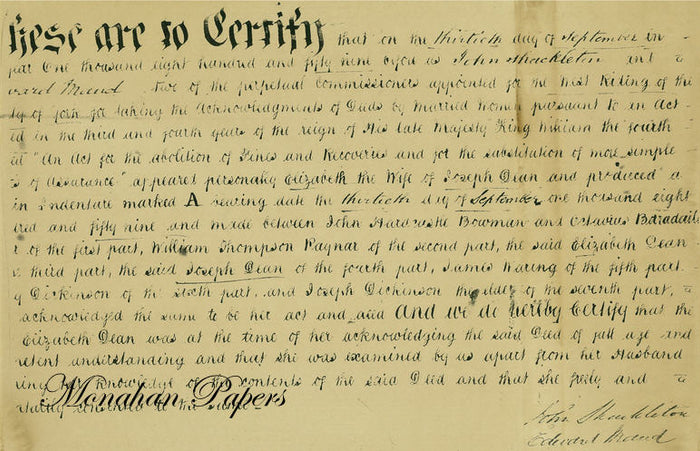 hese are to Certify that on the thirtieth day of September in
year One thousand eight hundred and fifty nine before us John Shackleton and
ward Maud two of the perpetual Commissioners appointed for the West Riding of the
ty of york for taking the Acknowledgments of Deeds by Married Women pursuant to an Act
ed in the third and fourth years of the reign of His late Majesty King William the fourth
"An Act for the abolition of Fines and Recoveries and for the substitution of more simple
s of Assurance" appeared personally Elizabeth the Wife of Joseph Dean and produced a
in Indenture marked A bearing date the thirtieth day of September one thousand eight
dred and fifty nine and made between John Hardcastle Bowman and Octavius
of the first part, William Thompson of the second part, the said Elizabeth Dean
third part, the said Joseph Dean of the fourth part, James Waring of the fifth part
y Dickinson of the sixth part, and Joseph Dickinson the elder of the seventh part,
acknowledged the same to be her act and deed And we do hereby Certify that the
Elizabeth Dean was at the time of her acknowledging the said Deed of full age and
petent understanding and that she was examined by us apart from her Husband
her knowledge of the contents of the said Deed and that she freely and
consented to the same
Monahan Papers
John Shackleton
Edward Maud